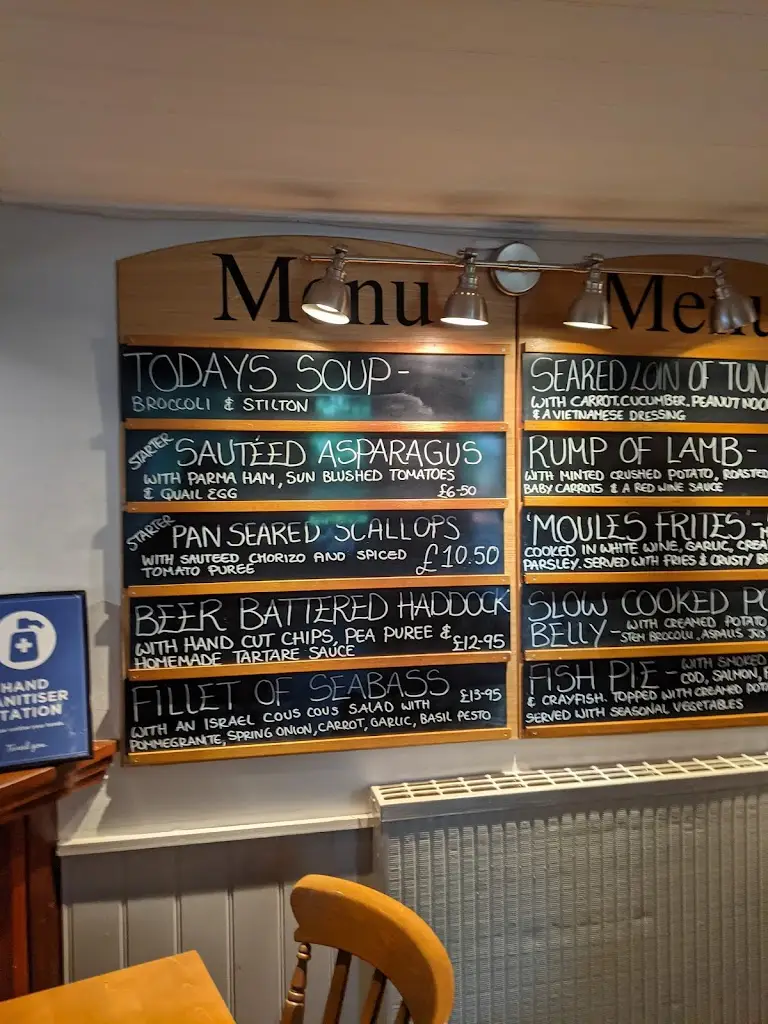 Menu
TODAYS SOUP-
BROCCOLI & STILTON
STARTER
SAUTÉED ASPARAGUS
WITH PARMA HAM, SUN BLUSHED TOMATOES
& QUAIL EGG £6-50
STARTER
PAN SEARED SCALLOPS
WITH SAUTEED CHORIZO AND SPICED
TOMATO PUREE £10.50
BEER BATTERED HADDOCK
WITH HAND CUT CHIPS, PEA PUREE &
HOMEMADE TARTARE SAUCE £12-95
FILLET OF SEABASS £15-95
WITH AN ISRAEL COUS COUS SALAD WITH
POMMEGRANTE, SPRING ONION, CARROT, GARLIC, BASIL PESTO
Menu
SEARED LOIN OF TUN
WITH CARROT, CUCUMBER, PEANUT NOO
& A VIETNAMESE DRESSING
RUMP OF LAMB-
WITH MINTED CRUSHED POTATO, ROASTED
BABY CARROTS & A RED WINE SAUCE
'MOULES FRITES'-
COOKED IN WHITE WINE, GARLIC, CREA
PARSLEY. SERVED WITH FRIES & CRUSTY BR
SLOW COOKED PO
BELLY- WITH CREAMED POTATO
STEM BROCOLLI,
FISH PIE- WITH SMOKED
COD, SALMON,
& CRAYFISH. TOPPED WITH CREAMED POTA
SERVED WITH SEASONAL VEGETABLES
HAND
SANITISER
STATION
Thank you